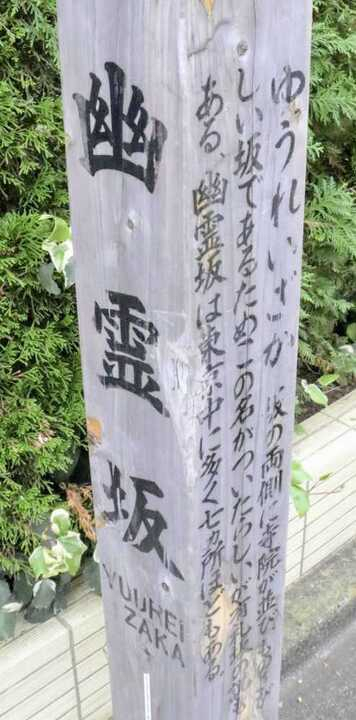 幽霊坂
YUUREI
ZAKA
ゆうれいざか 坂の両側に寺院が並びものさび
しい坂であるためこの名がついたらしいが有礼坂の説も
ある、幽霊坂は東京中に多く七ヵ所ほどもある。